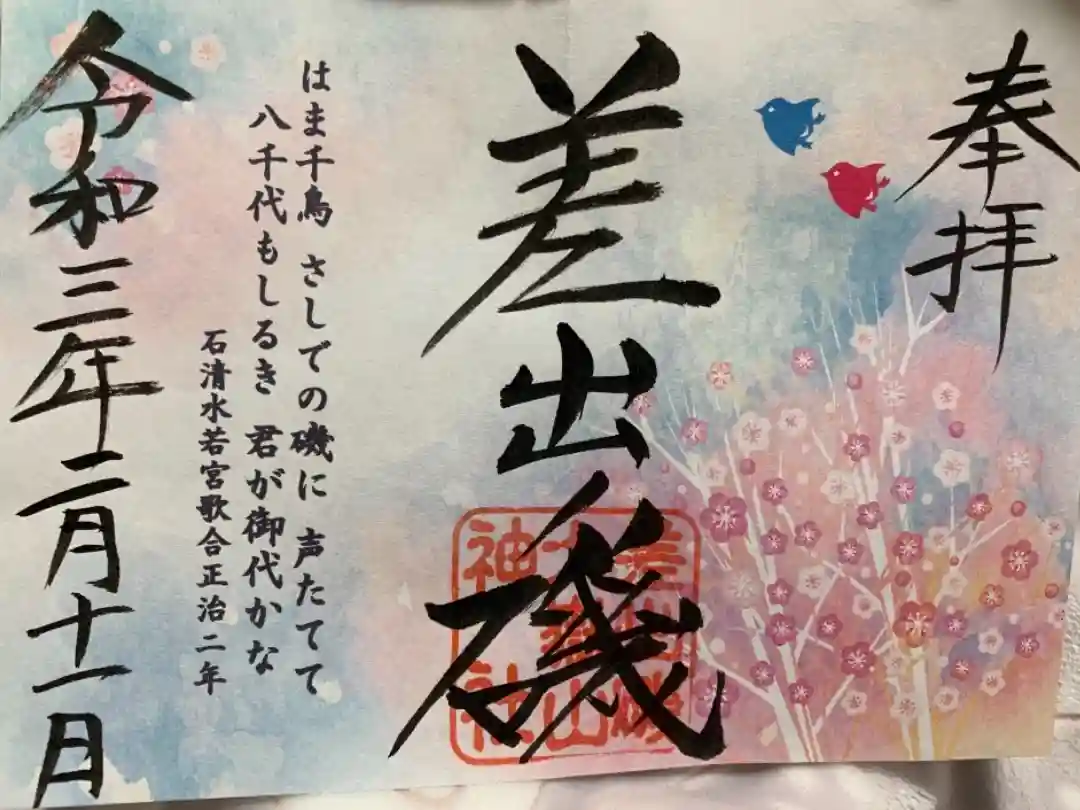 奉拝
差出磯
差出磯
大嶽山
神社
はま千鳥 さしでの磯に 声たてて
八千代もしるき 君が御代かな
石清水若宮歌合正治二年
令和三年二月十一日